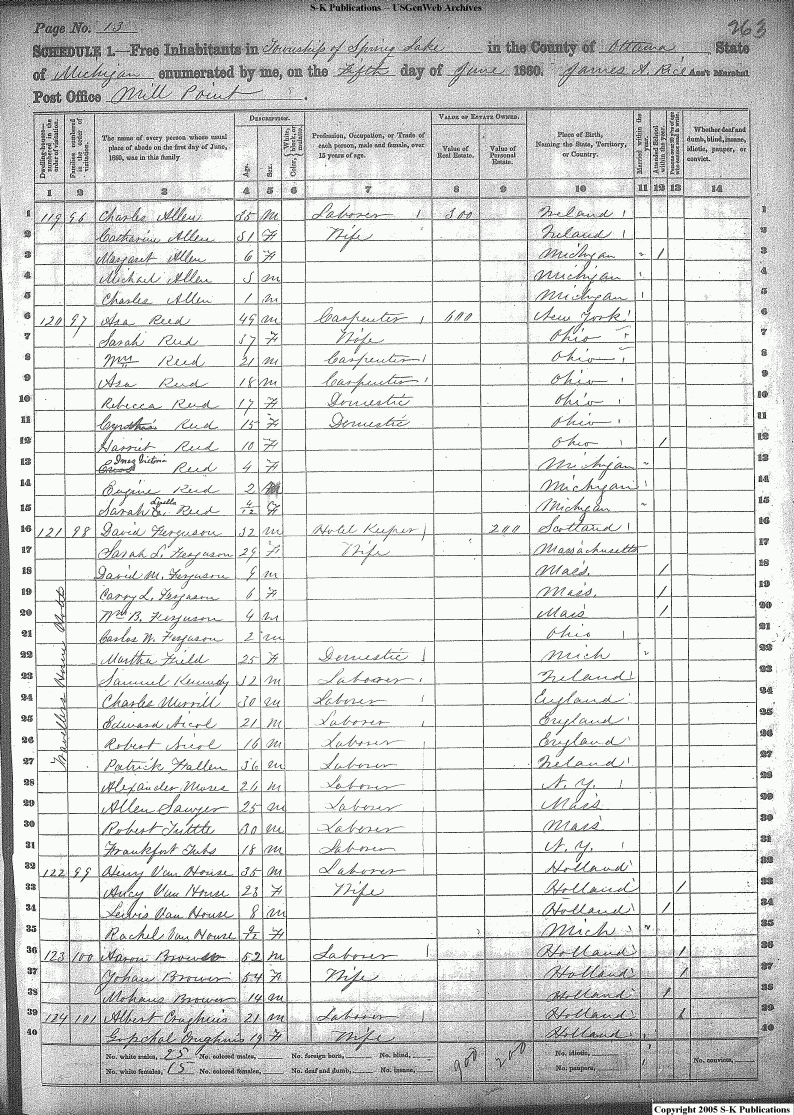 S-K Publications – USGenWeb Archives
Page No. 13
263
SCHEDULE 1.—Free Inhabitants in Township of Spring Lake in the County of Ottawa State
of Michigan enumerated by me, on the Fifth day of June 1860. James A. Rice Ass't Marshal
Post Office Mill Point.
Dwelling-houses—numbered in the order of visitation.
Families numbered in the order of visitation.
The name of every person whose usual place of abode on the first day of June, 1860, was in this family
DESCRIPTION.
Age.
Sex.
Color, White, black, or mulatto.
Profession, Occupation, or Trade of each person, male and female, over 15 years of age.
VALUE OF ESTATE OWNED.
Value of Real Estate.
Value of Personal Estate.
Place of Birth, Naming the State, Territory, or Country.
Married within the year.
Attended School within the year.
Whether deaf and dumb, blind, insane, idiotic, pauper, or convict.
1 2 3 4 5 6 7 8 9 10 11 12 13 14
1 119 96 Charles Allen 35 M Laborer 300 Ireland 1
2 Catharine Allen 31 F Wife Ireland 2
3 Margaret Allen 6 F Michigan 1 3
4 Michael Allen 3 M Michigan 4
5 Charles Allen 1 M Michigan 5
6 120 97 Asa Reed 49 M Carpenter 600 New York 6
7 Sarah Reed 37 F Wife Ohio 7
8 Wm Reed 21 M Carpenter Ohio 8
9 Asa Reed 18 M Carpenter Ohio 9
10 Rebecca Reed 17 F Domestic Ohio 10
11 Cynthia Reed 15 F Domestic Ohio 11
12 Harriet Reed 10 F Ohio 1 12
13 Inez Victoria Reed 4 F Michigan 13
14 Eugene Reed 2 M Michigan 14
15 Sarah Luella Reed 4/12 F Michigan 15
16 121 98 David Ferguson 32 M Hotel Keeper 200 Scotland 16
17 Sarah L. Ferguson 29 F Wife Massachusetts 17
18 David M. Ferguson 9 M Mass. 1 18
19 Carry L. Ferguson 6 F Mass. 1 19
20 Wm B. Ferguson 4 M Mass 1 20
21 Carlos W. Ferguson 2 M Ohio 21
22 Martha Field 25 F Domestic Mich 22
23 Samuel Kennedy 32 M Laborer Ireland 23
24 Charles Merrill 30 M Laborer England 24
25 Edward Nicol 21 M Laborer England 25
26 Robert Nicol 16 M Laborer England 26
27 Patrick Fallen 36 M Laborer Ireland 27
28 Alexander 26 M Laborer N. Y. 28
29 Allen Sawyer 25 M Laborer Mass 29
30 Robert Tuttle 30 M Laborer Mass 30
31 Frankfort Tubs 18 M Laborer N. Y. 31
Travellers Home
32 122 99 Henry Van House 35 M Laborer Holland 32
33 Van House 23 F Wife Holland 1 33
34 Lewis Van House 8 M Holland 1 34
35 Rachel Van House F Mich 35
36 123 100 Aaron Brower 52 M Laborer Holland 1 36
37 Johan Brower 54 F Wife Holland 1 37
38 Brower 14 M Holland 1 38
39 124 101 Albert 21 M Laborer Holland 1 39
40 19 F Wife Holland 40
No. white males, 25 No. colored males, No. foreign born, No. blind, 900 200 No. idiotic,
No. white females, 15 No. colored females, No. deaf and dumb, No. insane, No. paupers, No. convicts,
Copyright 2005 S-K Publications